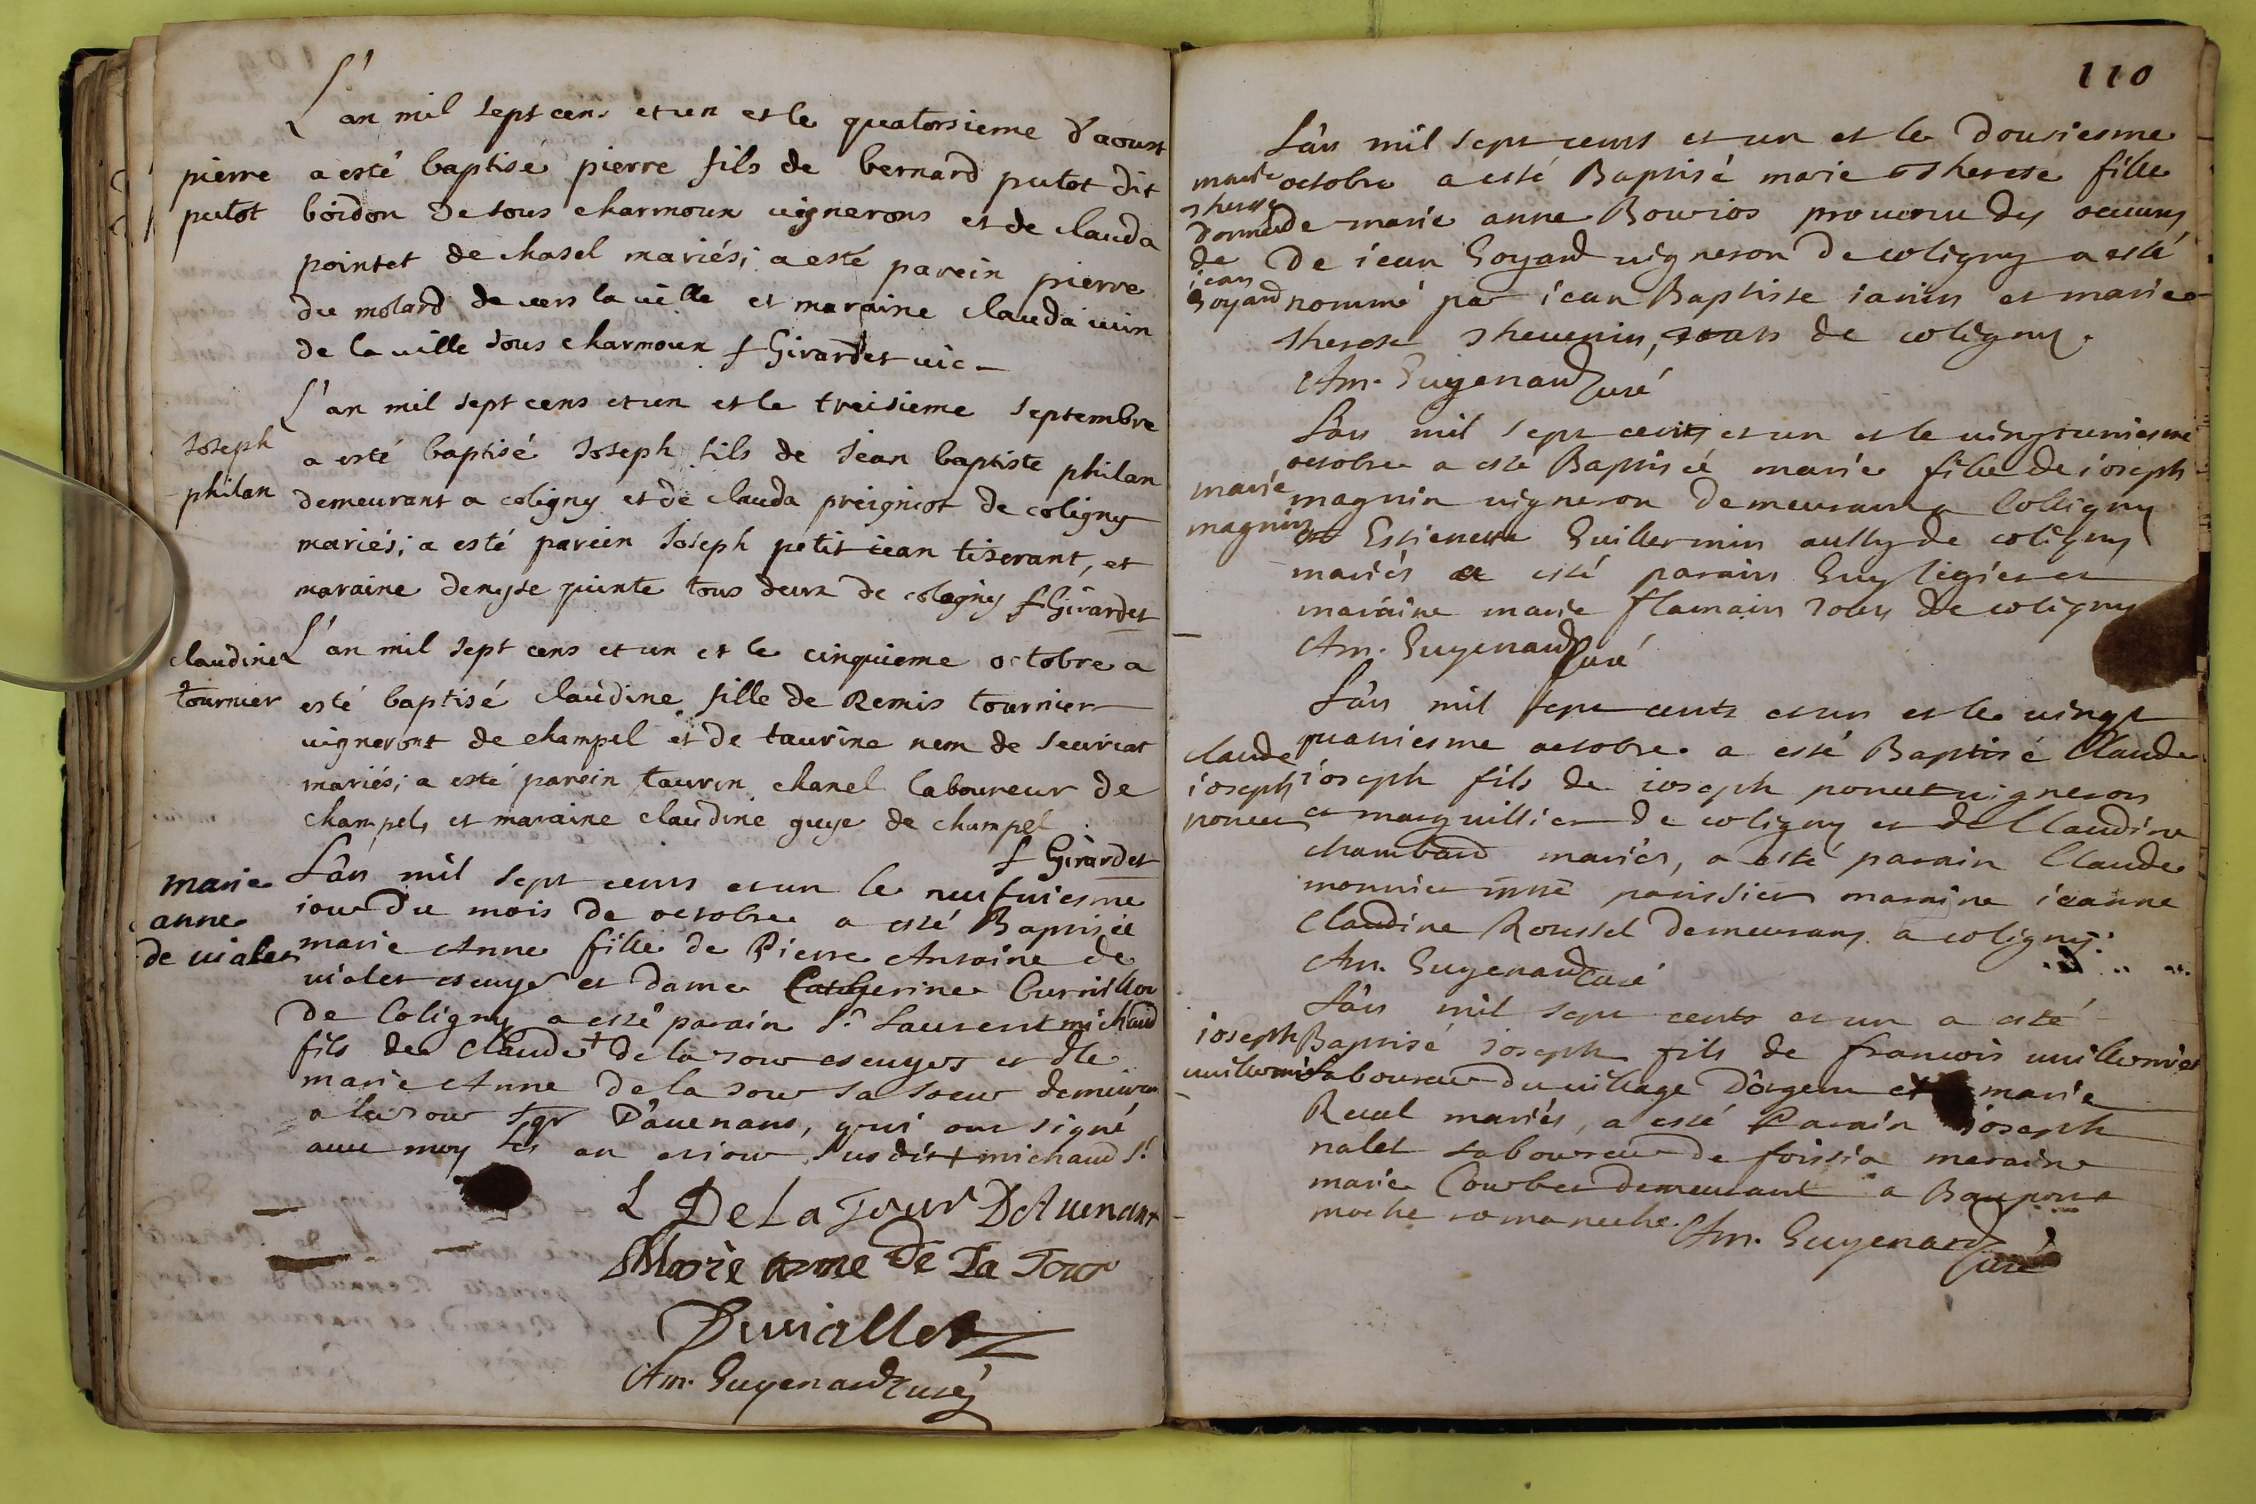 L'an mil sept cens et un et le quatorsieme d'aoust
pierre a esté baptisé pierre fils de bernard putot dit
putot boidon de sous charmoux vignerons et de clauda
pointet de chasel mariés; a esté parein pierre
du molard de vers la ville et maraine clauda vuin
de la ville sous charmoux f Girardet vic
L'an mil sept cens et un et le treisieme septembre
Joseph a esté baptisé Joseph fils de Jean baptiste philan
philan demeurant a coligny et de clauda preignicot de coligny
mariés; a esté parein Joseph petit iean tiserant, et
maraine denyse quinte tous deux de coligny f Girardet
claudine L'an mil sept cens et un et le cinquieme octobre a
tournier esté baptisé claudine fille de Remis tournier
vigneront de champel et de taurine nem de seuriat
mariés; a esté parein taurin chanel laboureur de
champels et maraine claudine guye de champel
f Girardet
marie L'an mil sept cents et un le neufuiesme
anne iour du mois de octobre a esté Baptisée
de vialet marie Anne fille de Pierre Antoine de
vialet escuyer et dame Catherine Curnillon
de Coligny a esté parain Sr. Laurent michaud
fils de Claude + de la tour escuyer et dlle
marie Anne de la tour sa soeur demeurant
a la tour sgr D'auenans, qui ont signé
auec moy les an et iour susdit + michaud Sr.
L De La Tour DAuenant
Marie anne de La Tour
Duviallet
Am. Guyenard curé
110
L'an mil sept cents et un et le dousiesme
marie octobre a esté Baptisé marie Therese fille
therese donnée de marie anne Bouvios prouenu des oeuures
de De iean Goyard vigneron de coligny a esté
iean Goyard nommé par iean Baptiste ianin et marie
therese theuenin, tous de coligny.
Am. Guyenard curé
L'an mil sept cents et un et le vingtuniesme
octobre a esté Baptisée marie fille de ioseph
marie magnin vigneron demeurant a Colligny
magnin et Estienette Guillermin aussy de coligny
mariés a esté parain Guy legier et
maraine marie flamain tous de coligny
Am. Guyenard Curé
L'an mil sept cents et un et le vingt
quatriesme octobre a esté Baptisé Claude
claude ioseph fils de ioseph poncet vigneron
ioseph poncet et marguillier de coligny et de Claudine
chambard mariés, a esté parain Claude
monnier patissier maraine ieanne
Claudine Roussel demeurans a coligny
Am. Guyenard curé
L'an mil sept cents et un a esté
ioseph Baptisé ioseph fils de francois vuillermiet
vuillermiet Laboureur du village Dorgeat et marie
Reuel mariés, a esté Parain ioseph
nalet Laboureur de foissia meraine
marie Courbet demeurant a Baupont
proche romaneche. Am. Guyenard
Curé